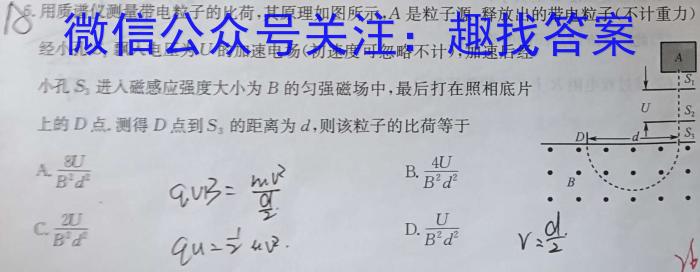 18
5. 用质谱仪测量带电粒子的比荷,其原理如图所示,A 是粒子源,释放出的带电粒子(不计重力)
微信公众号关注:趣找答案
经小孔 飘入电压为 U 的加速电场(初速度可忽略不计),加速后经
小孔 S₃ 进入磁感应强度大小为 B 的匀强磁场中,最后打在照相底片
上的 D 点. 测得 D 点到 S₃ 的距离为 d,则该粒子的比荷等于
A. 8U/B²d²
B. 4U/B²d²
C. 2U/B²d²
D. U/B²d²
qvB = mv²/(d/2)
qu = ½ mv².
r = d/2
A
S₁
U
S₂
D
d
S₃
B